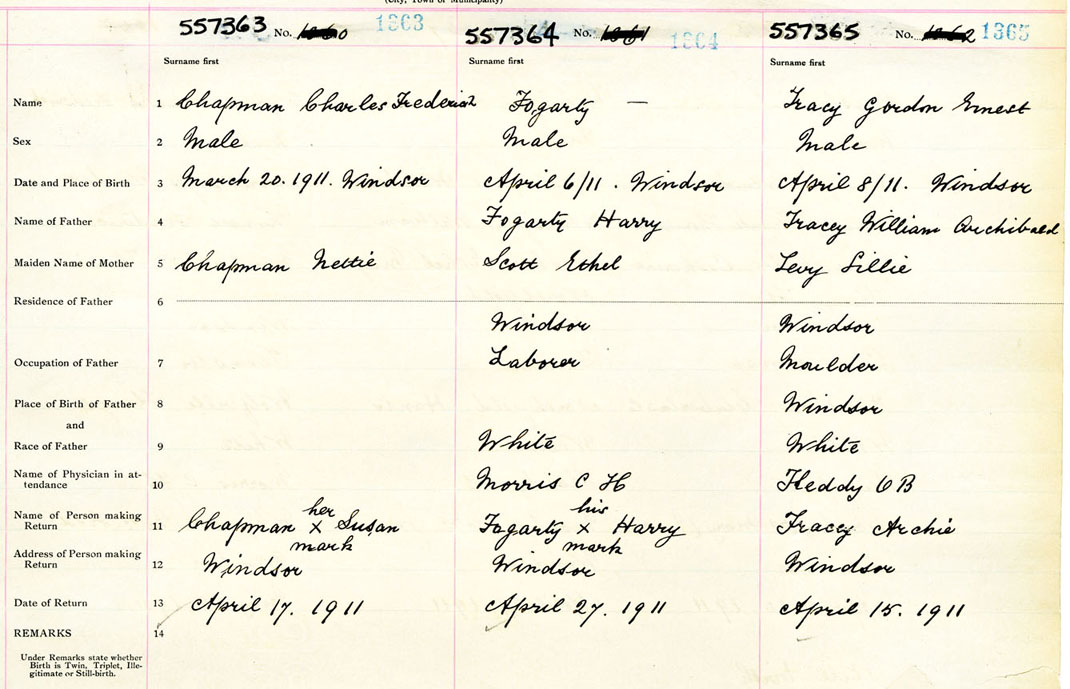 (City, Town or Municipality)
557363 No. 1363 557364 No. 1364 557365 No. 1365
Surname first Surname first Surname first
Name 1 Chapman Charles Frederick Fogarty — Tracy Gordon Ernest
Sex 2 Male Male Male
Date and Place of Birth 3 March 20. 1911. Windsor April 6/11. Windsor April 8/11. Windsor
Name of Father 4 Fogarty Harry Tracey William Archibald
Maiden Name of Mother 5 Chapman Nettie Scott Ethel Levy Lillie
Residence of Father 6
Windsor Windsor
Occupation of Father 7 Laborer Moulder
Place of Birth of Father 8 Windsor
and
Race of Father 9 White White
Name of Physician in at-
tendance 10 Morris C H Keddy O B
her his
Name of Person making
Return 11 Chapman x Susan Fogarty x Harry Tracey Archie
mark mark
Address of Person making
Return 12 Windsor Windsor Windsor
Date of Return 13 April 17. 1911 April 27. 1911 April 15. 1911
REMARKS 14
Under Remarks state whether
Birth is Twin, Triplet, Ille-
gitimate or Still-birth.